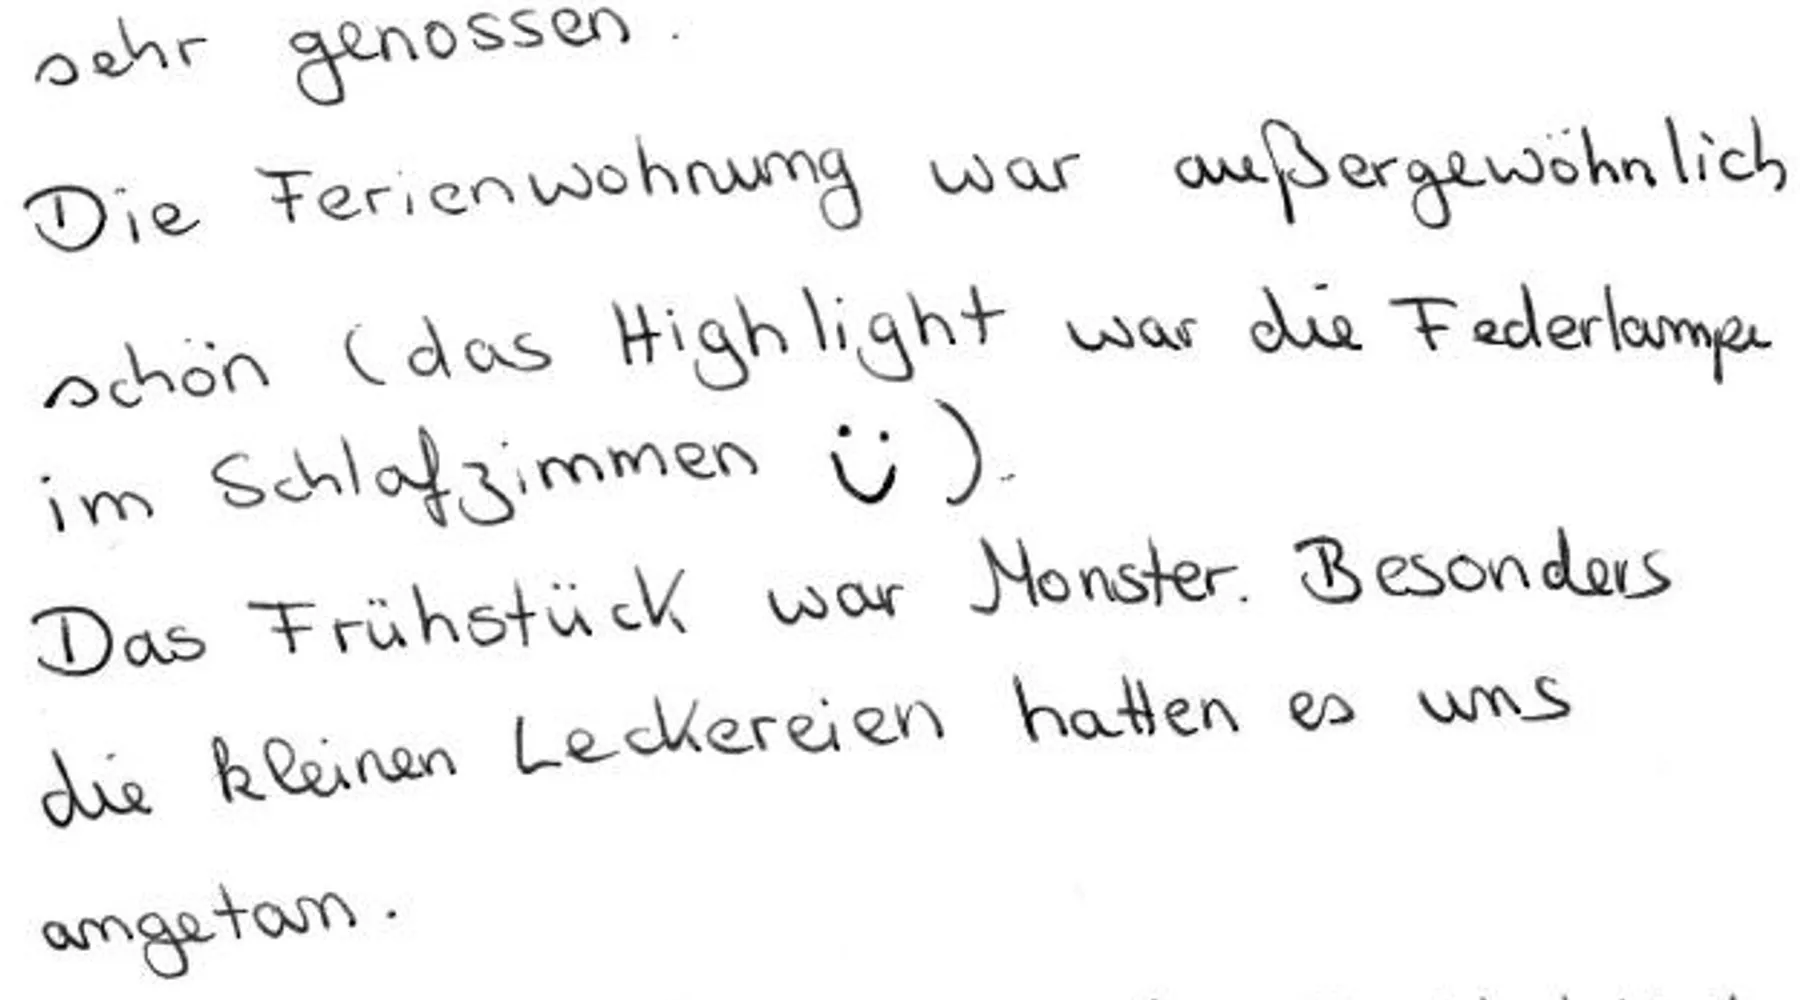 sehr genossen.
Die Ferienwohnung war außergewöhnlich
schön (das Highlight war die Federlampe
im Schlafzimmen ü).
Das Frühstück war Monster. Besonders
die kleinen Leckereien hatten es uns
angetan.